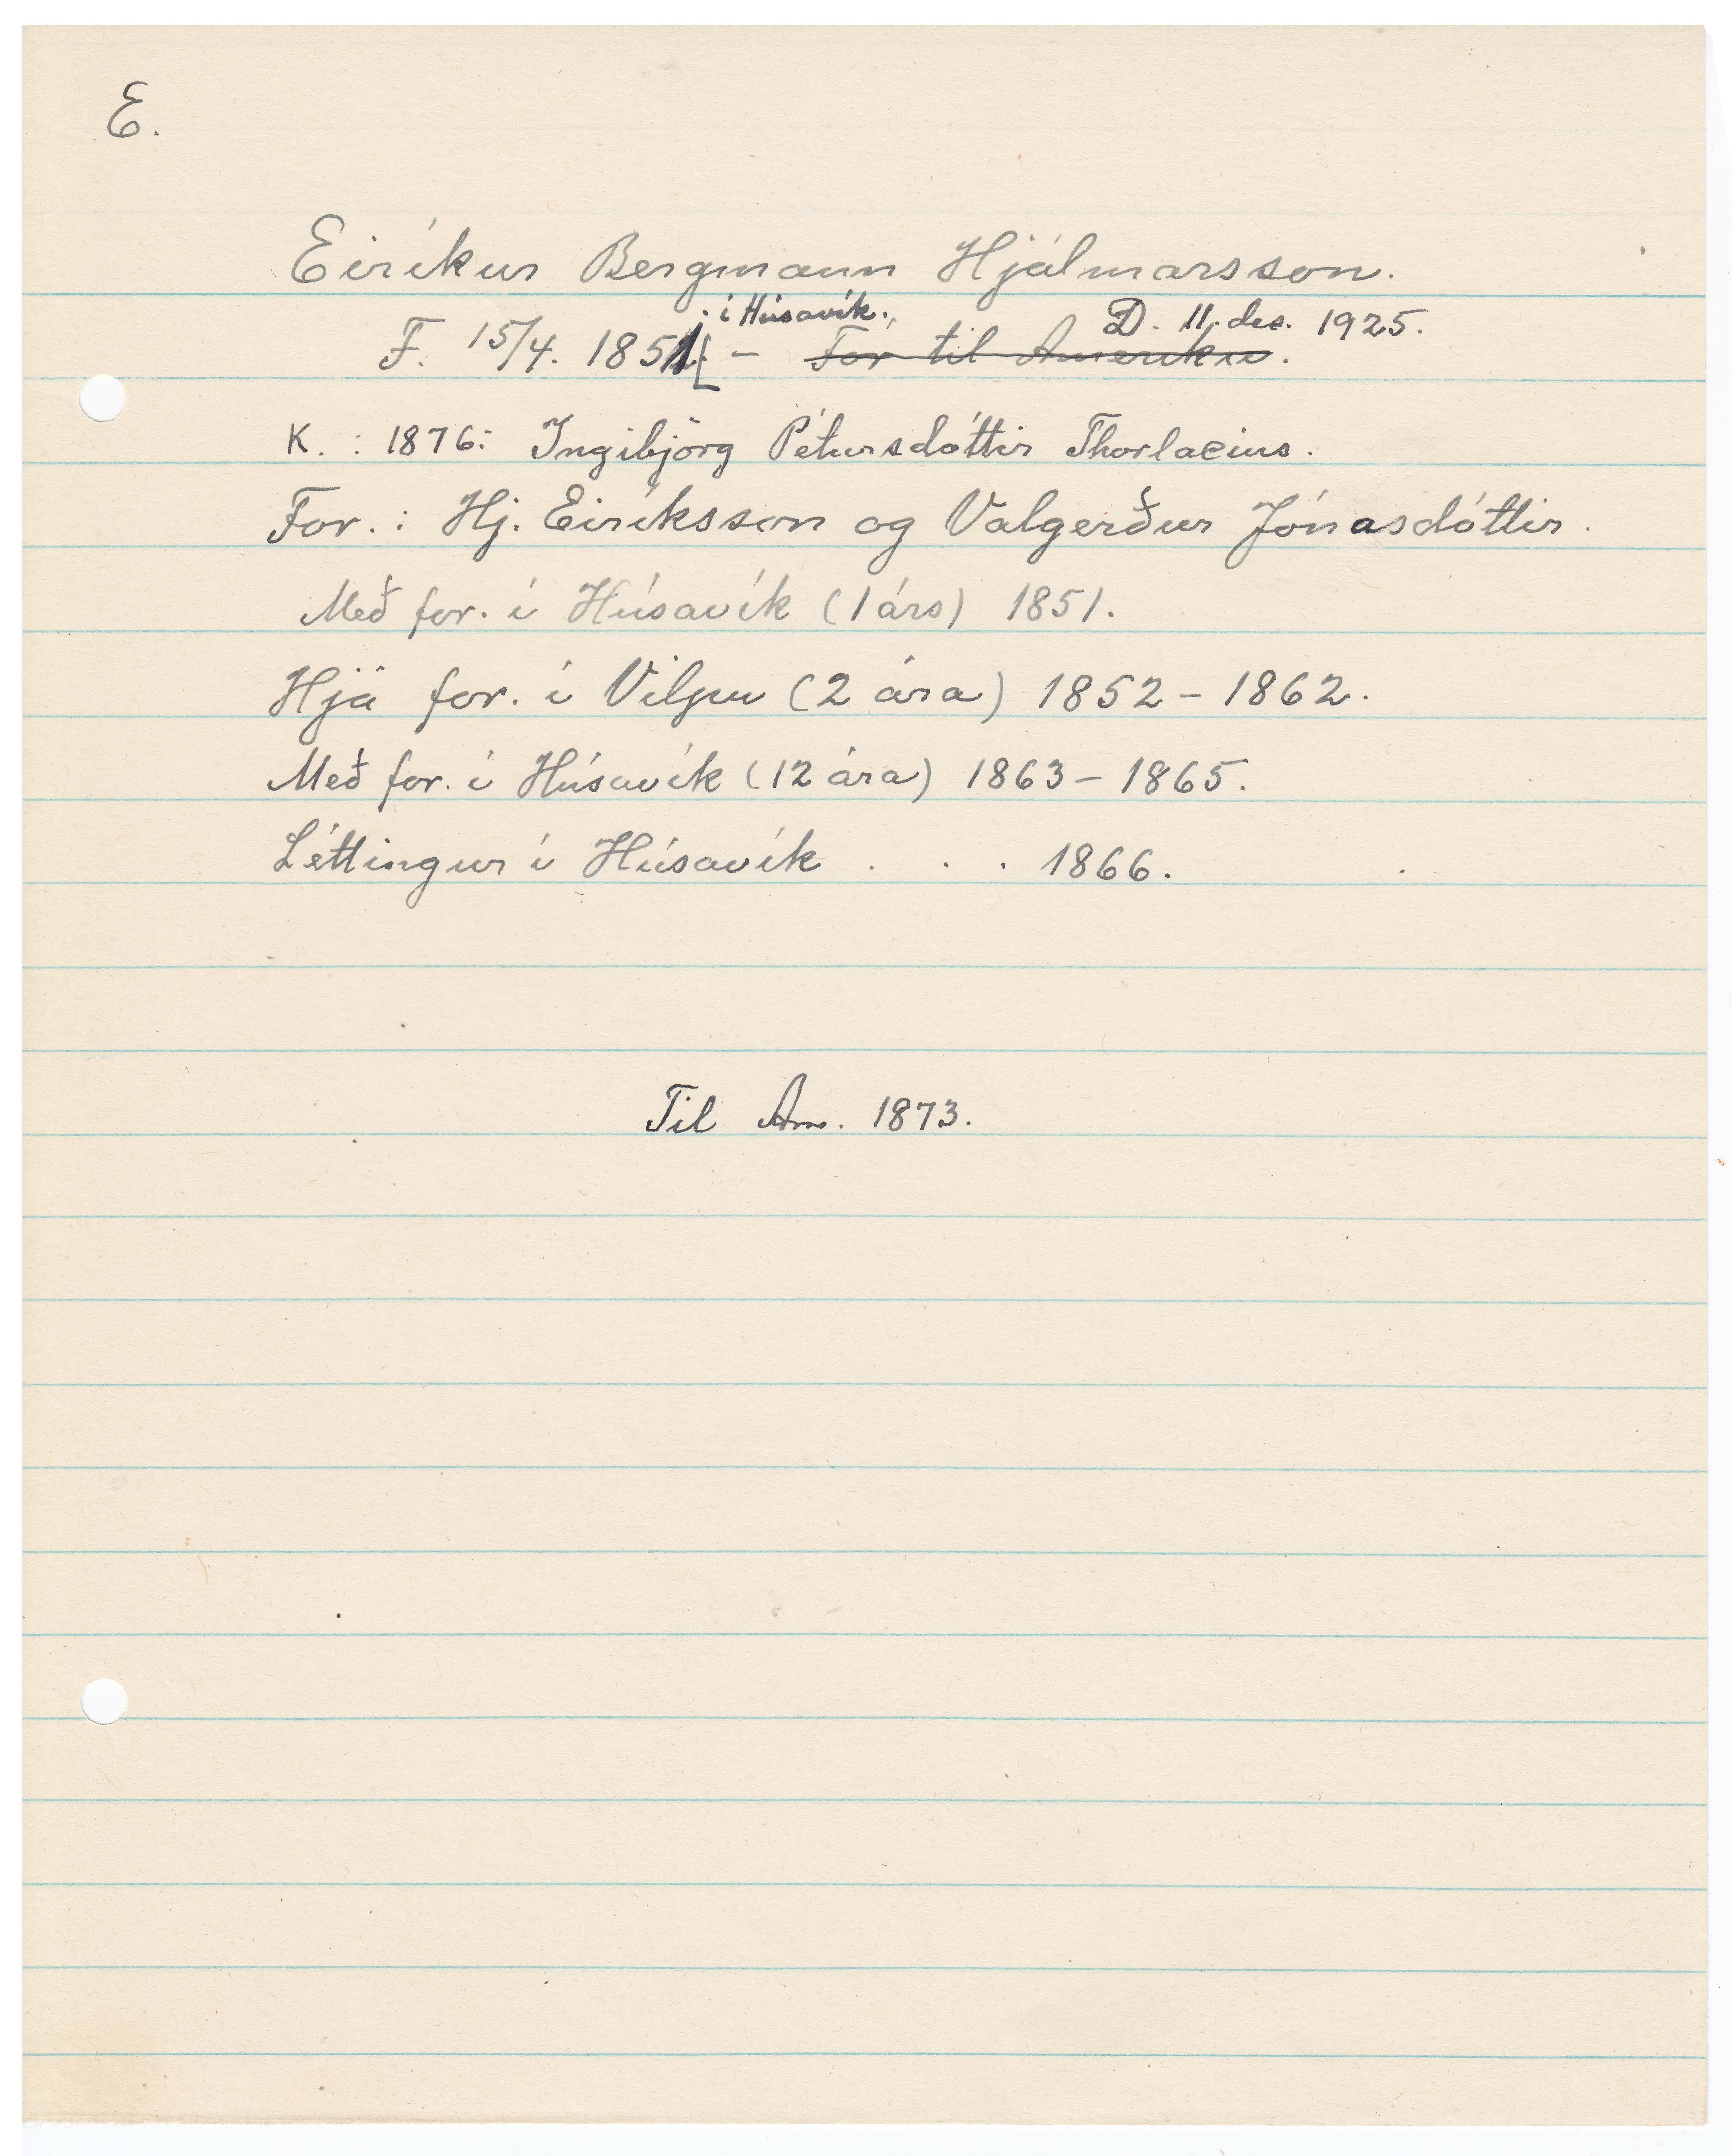 E.
Eiríkur Bergmann Hjálmarsson.
í Húsavík. D. 11. des. 1925.
F. 15/4. 1851 – Fór til Ameríku.
K. : 1876: Ingibjörg Pétursdóttir Thorlacius.
For. : Hj. Eiríksson og Valgerður Jónasdóttir.
Með for. í Húsavík (1 árs) 1851.
Hjá for. í Vilpu (2 ára) 1852 – 1862.
Með for. í Húsavík (12 ára) 1863 – 1865.
Léttingur í Húsavík . . . 1866.
Til Am. 1873.